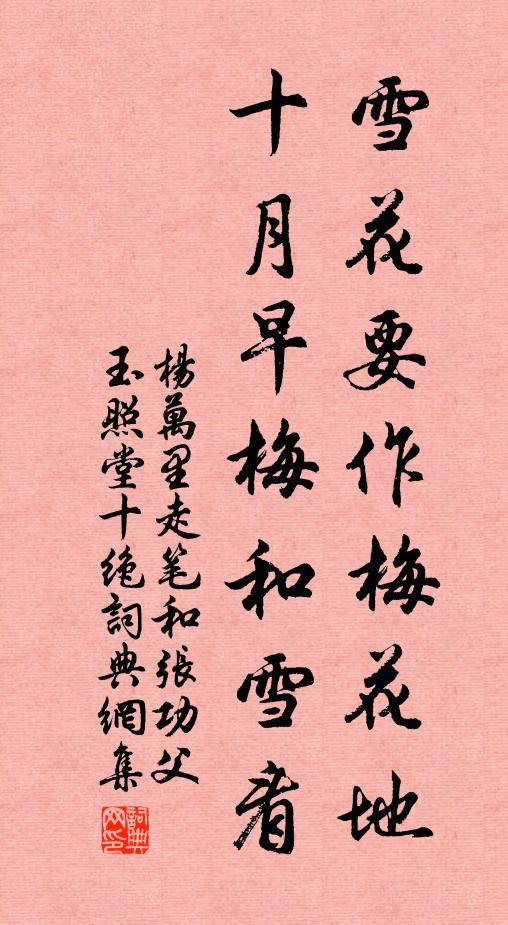 雪花要作梅花地
十月早梅和雪看
楊萬里走笔和張功父
玉照堂十絶詞典網集
詞典网印